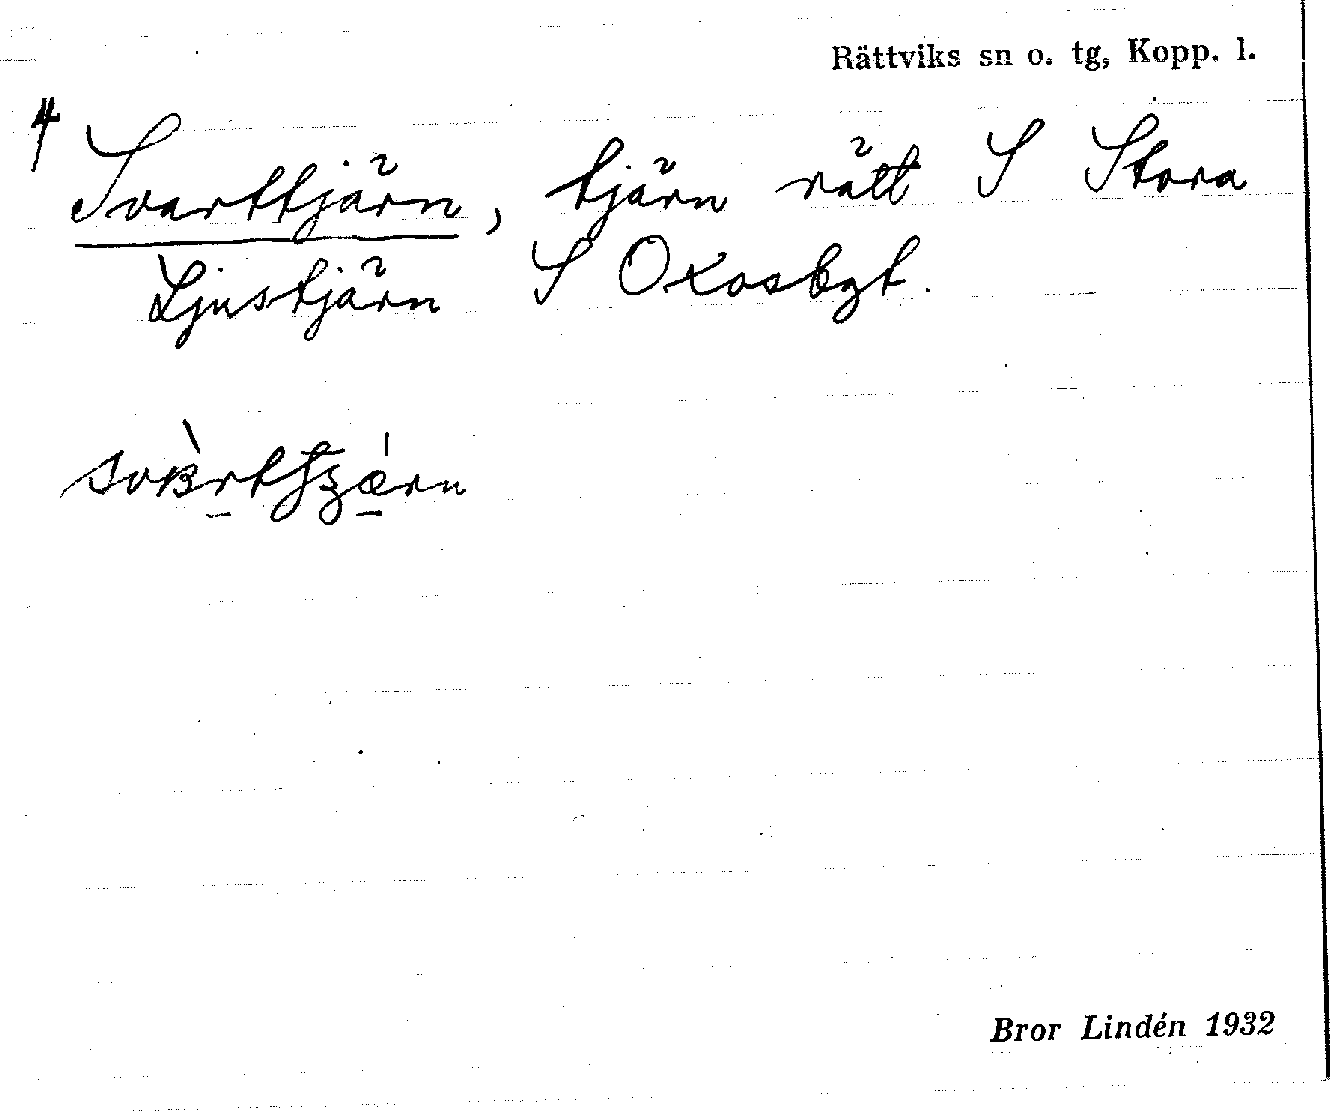 Rättviks sn o. tg, Kopp. l.
4
Svarttjärn, tjärn rätt S Stora
Ljustjärn S Oxåsbgt.
Bror Lindén 1932